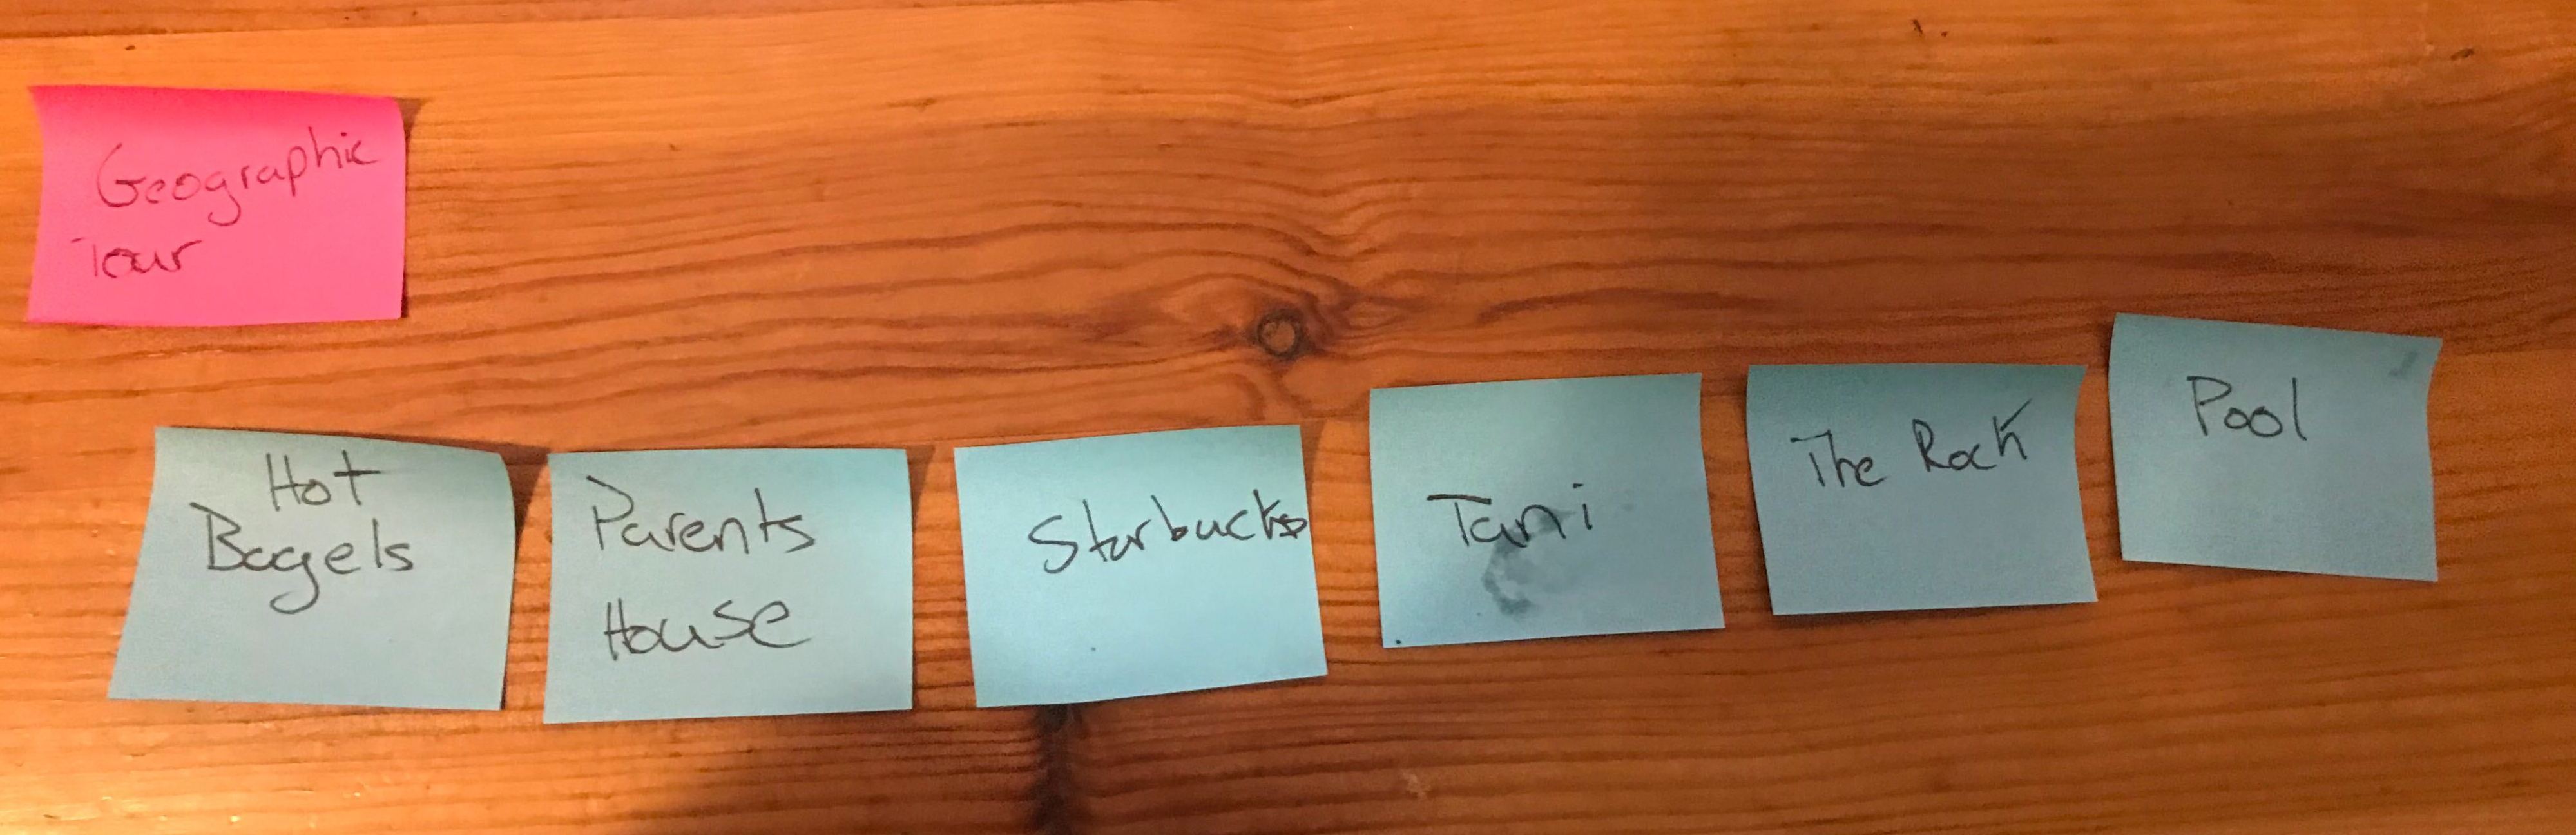 Geographic
Tour
Hot
Bagels
Parents
House
Starbucks
Tani
The Rock
Pool